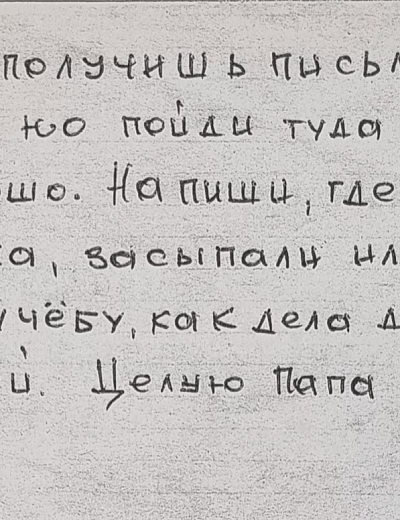 получишь письм
ню пойди туда
шо. Напиши, где
ка, засыпали ил
учёбу, как дела д
й. Целую Папа